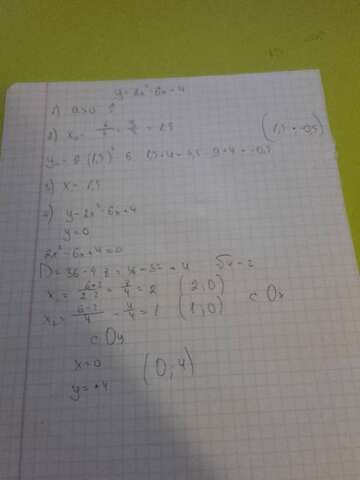 y=2x²-6x+4
1) a>0 ↑
2) x₀ = 6/4 = 3/2 = 1,5 (1,5; -0,5)
y₀ = 2·(1,5)² - 6·1,5+4 = 4,5-9+4 = -0,5
3) x=1,5
4) y=2x²-6x+4
y=0
2x²-6x+4=0
D=36-4·8=36-32=4 √4=2
x₁ = (6+2)/(2·2) = 8/4 = 2 (2;0)
x₂ = (6-2)/4 = 4/4 = 1 (1;0) с Ox
с Oy
x=0 (0;4)
y=+4